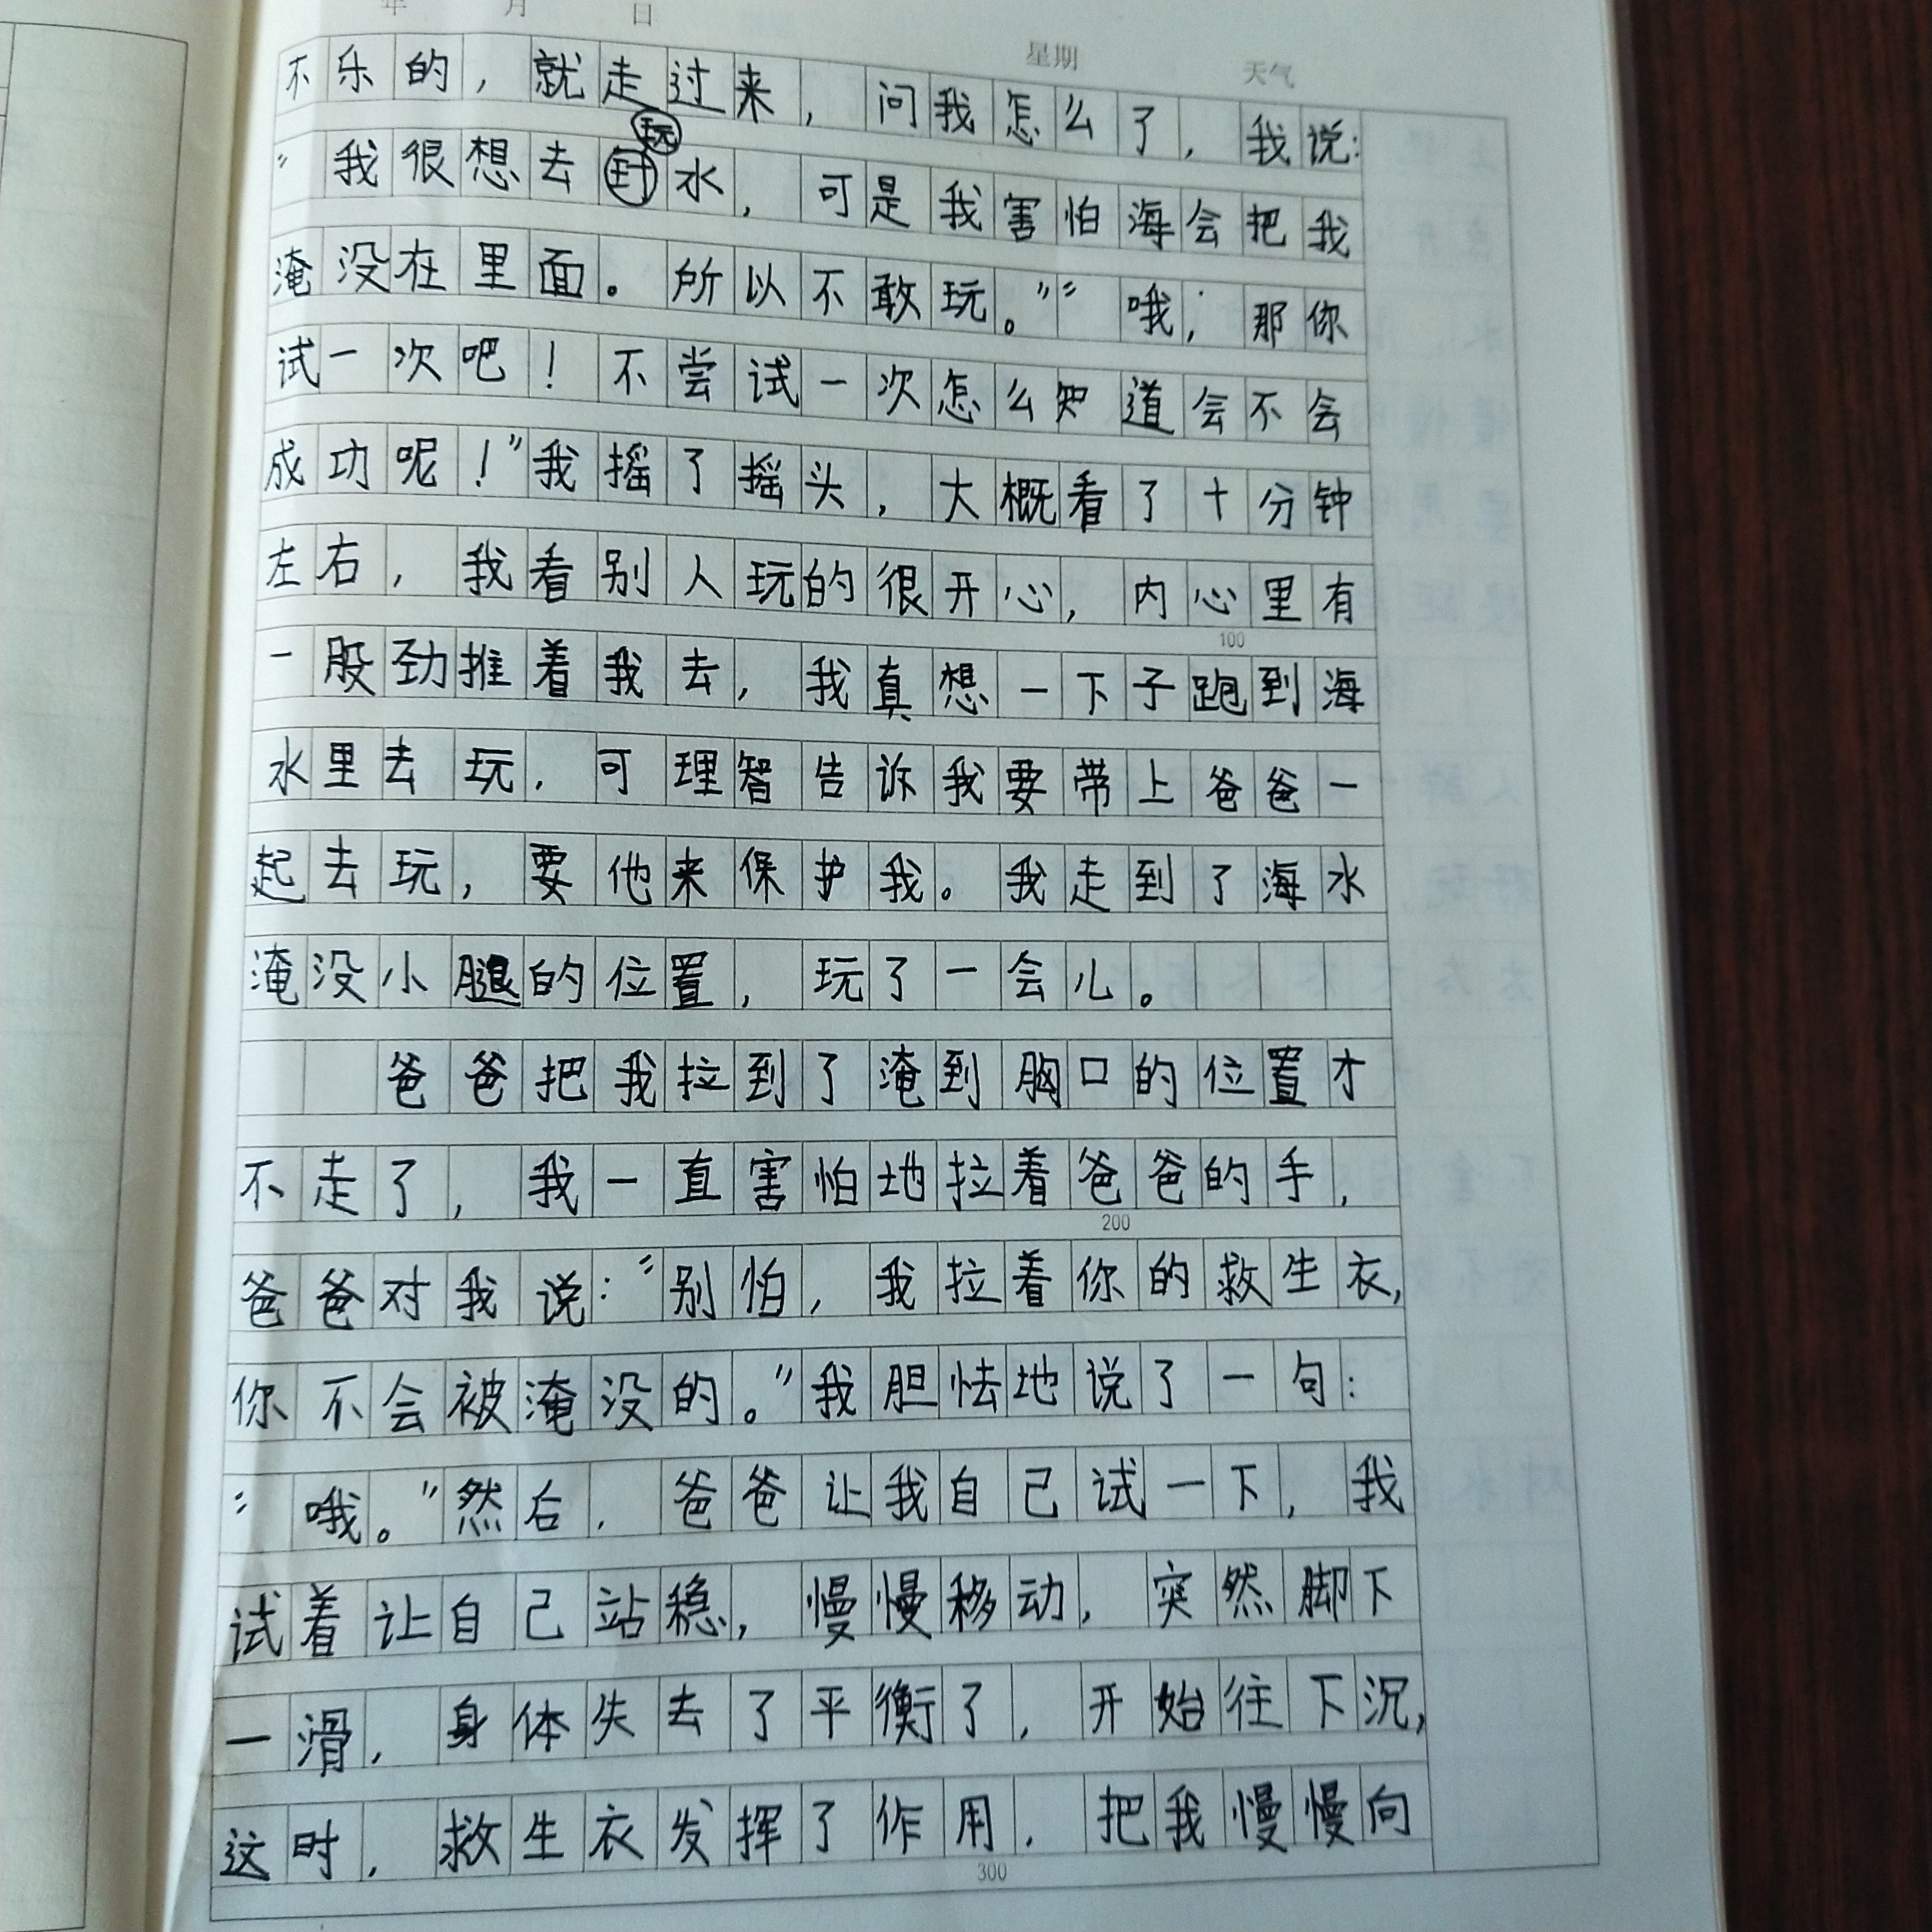 年 月 日
星期 天气
不乐的，就走过来，问我怎么了，我说：
玩
“我很想去水，可是我害怕海会把我
淹没在里面。所以不敢玩。”“哦，那你
试一次吧！不尝试一次怎么知道会不会
成功呢！”我摇了摇头，大概看了十分钟
左右，我看别人玩的很开心，内心里有
100
一股劲推着我去，我真想一下子跑到海
水里去玩，可理智告诉我要带上爸爸一
起去玩，要他来保护我。我走到了海水
淹没小腿的位置，玩了一会儿。
爸爸把我拉到了淹到胸口的位置才
不走了，我一直害怕地拉着爸爸的手，
200
爸爸对我说：“别怕，我拉着你的救生衣，
你不会被淹没的。”我胆怯地说了一句：
“哦。”然后，爸爸让我自己试一下，我
试着让自己站稳，慢慢移动，突然脚下
一滑，身体失去了平衡了，开始往下沉，
这时，救生衣发挥了作用，把我慢慢向
300